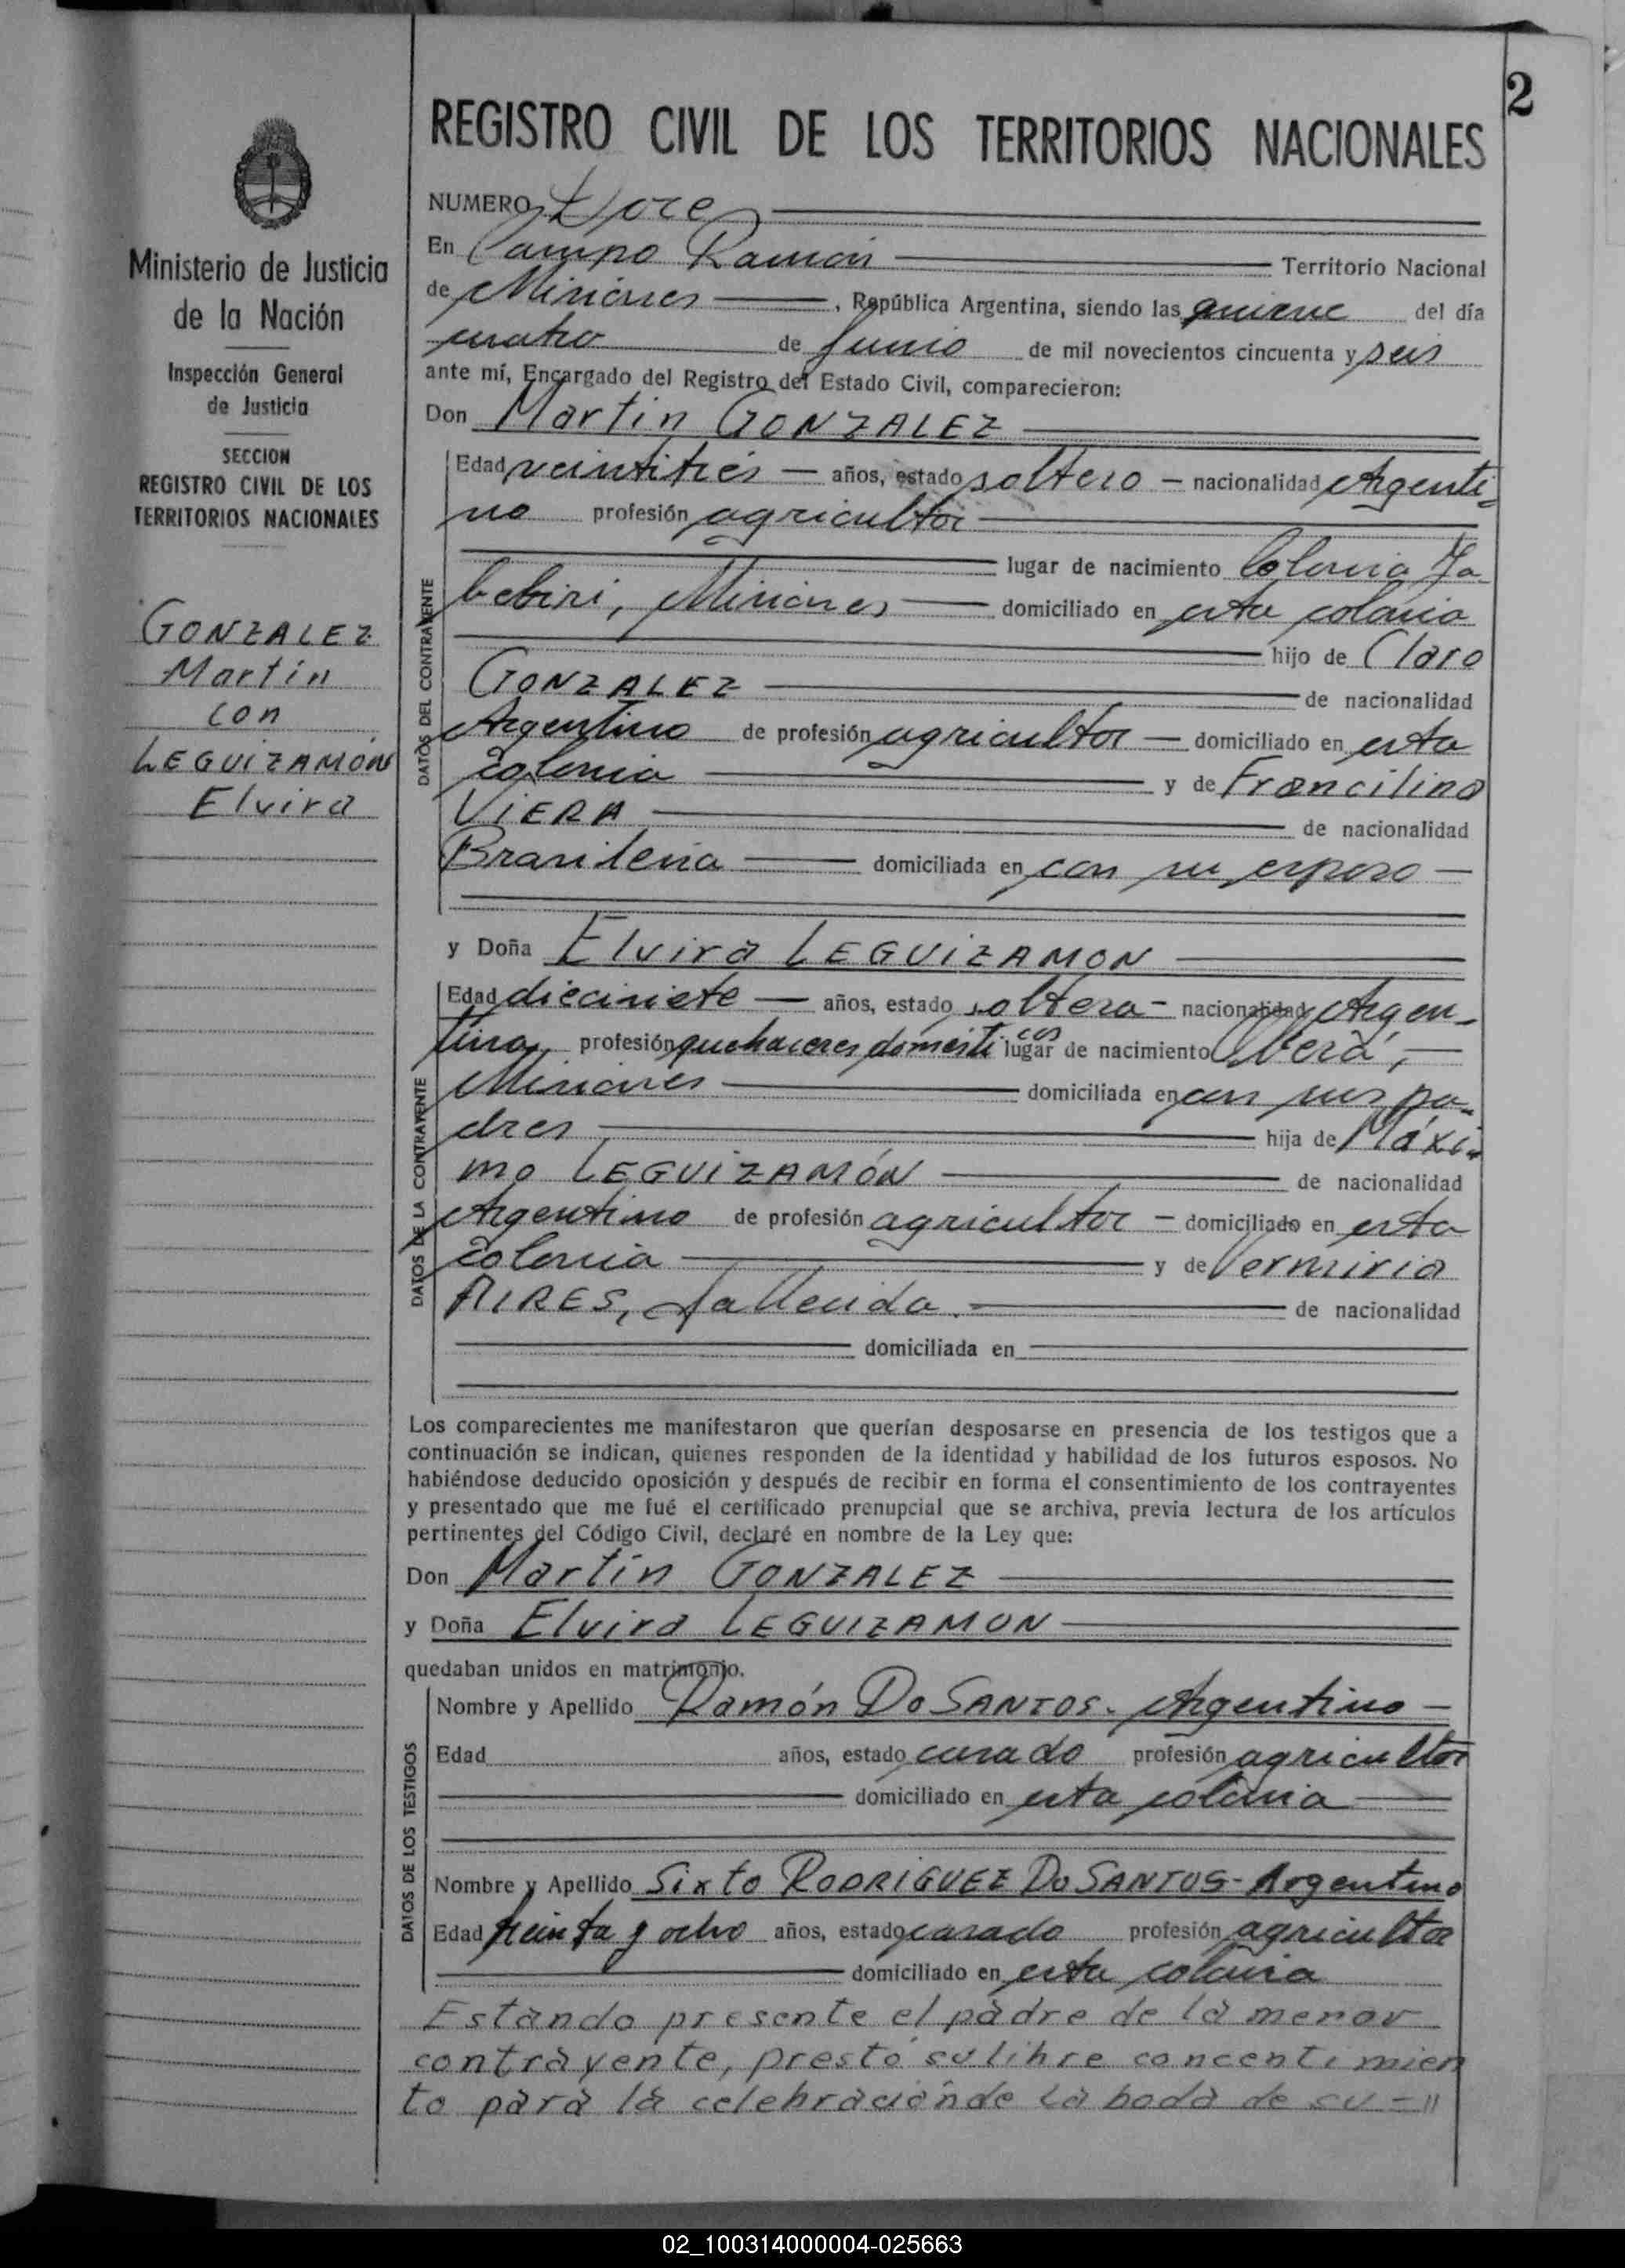 2
REGISTRO CIVIL DE LOS TERRITORIOS NACIONALES
Ministerio de Justicia
de la Nación
Inspección General
de Justicia
SECCION
REGISTRO CIVIL DE LOS
TERRITORIOS NACIONALES
GONZALEZ
Martín
con
LEGUIZAMÓN
Elvira
NUMERO Doce
En Campo Ramón Territorio Nacional
de Misiones, República Argentina, siendo las quince del día
cuatro de Junio de mil novecientos cincuenta y seis
ante mí, Encargado del Registro del Estado Civil, comparecieron:
Don Martin GONZALEZ
DATOS DEL CONTRAYENTE
Edad veintitrés años, estado soltero nacionalidad Argenti-
no profesión agricultor
lugar de nacimiento Colonia Ya-
bebiri, Misiones domiciliado en esta colonia
hijo de Claro
GONZALEZ de nacionalidad
Argentino de profesión agricultor domiciliado en esta
colonia y de Francilina
VIERA de nacionalidad
Brasileña domiciliada en con su esposo
y Doña Elvira LEGUIZAMON
DATOS DE LA CONTRAYENTE
Edad diecisiete años, estado soltera nacionalidad Argen-
tina, profesión quehaceres domésticos lugar de nacimiento Oberá,
Misiones domiciliada en con sus pa-
dres hija de Máxi-
mo LEGUIZAMÓN de nacionalidad
Argentino de profesión agricultor domiciliado en esta
colonia y de
AIRES, fallecida. de nacionalidad
domiciliada en
Los comparecientes me manifestaron que querían desposarse en presencia de los testigos que a
continuación se indican, quienes responden de la identidad y habilidad de los futuros esposos. No
habiéndose deducido oposición y después de recibir en forma el consentimiento de los contrayentes
y presentado que me fué el certificado prenupcial que se archiva, previa lectura de los artículos
pertinentes del Código Civil, declaré en nombre de la Ley que:
Don Martín GONZALEZ
y Doña Elvira LEGUIZAMON
quedaban unidos en matrimonio.
DATOS DE LOS TESTIGOS
Nombre y Apellido Ramón Do SANTOS. Argentino
Edad años, estado casado profesión agricultor
domiciliado en esta colonia
Nombre y Apellido Sixto RODRIGUEZ Do SANTOS- Argentino
Edad treinta y ocho años, estado casado profesión agricultor
domiciliado en esta colonia
Estando presente el padre de la menor
contrayente, prestó su libre concentimien
to para la celebración de la boda de su =//
02_100314000004-025663